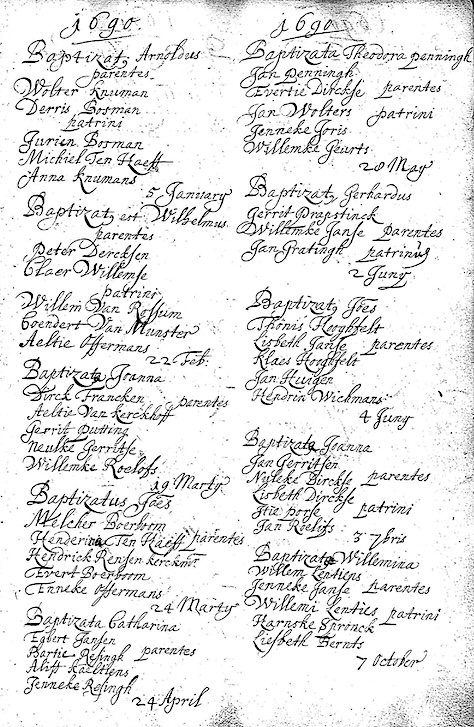 1690.
Baptizatq Arnoldus
parentes
Wolter Knuman
Derris Bosman
patrini
Jurien Bosman
Michiel Ten Haeff
Anna Knumans
5 January
Baptizatq est Wilhelmus
parentes
Peter Dercksen
Claer Willemse
patrini
Willem Van Rossum
Coendert Van Munster
Aeltie Offermans
22 Feb:
Baptizata Joanna
Dirck Francken parentes
Aeltie Van Kerckhoff
Gerrit Putting
Neulke Gerritse
Willemke Roelofs
19 Marty
Baptizatus Joes
Melcher Boerbom
Henderica Ten Haeff parentes
Hendrick Rensen
Evert Boerboom
Enneke Offermans
24 Marty
Baptizata Catharina
Egbert Jansen
Bartie Resingh parentes
Aliff
Jenneke Resingh
24 April
1690
Baptizata Theodora penningh
Jan Penningh
Evertie Dirckse parentes
Jan Wolters patrini
Jenneke Joris
Willemke Geurts
28 May
Baptizatq Gerhardus
Gerrit Drapstinck
Willemke Janse parentes
Jan Gratingh patrinus
2 Juny
Baptizatq Joes
Thonis Hooghfelt
Lisbeth Janse parentes
Klaes Hooghfelt
Jan Huigen
Hendrin Wichmans
4 Juny
Baptizata Joanna
Jan Gerritsen
Nyleke Dirckse parentes
Lisbeth Dirckse
patrini
Jan Roelifs
3 7bris
Baptizata Willemina
Willem Lentiens
Jenneke Janse parentes
Willemi Lenties patrini
Harnske Spronck
Liesbeth Bernts
7 October